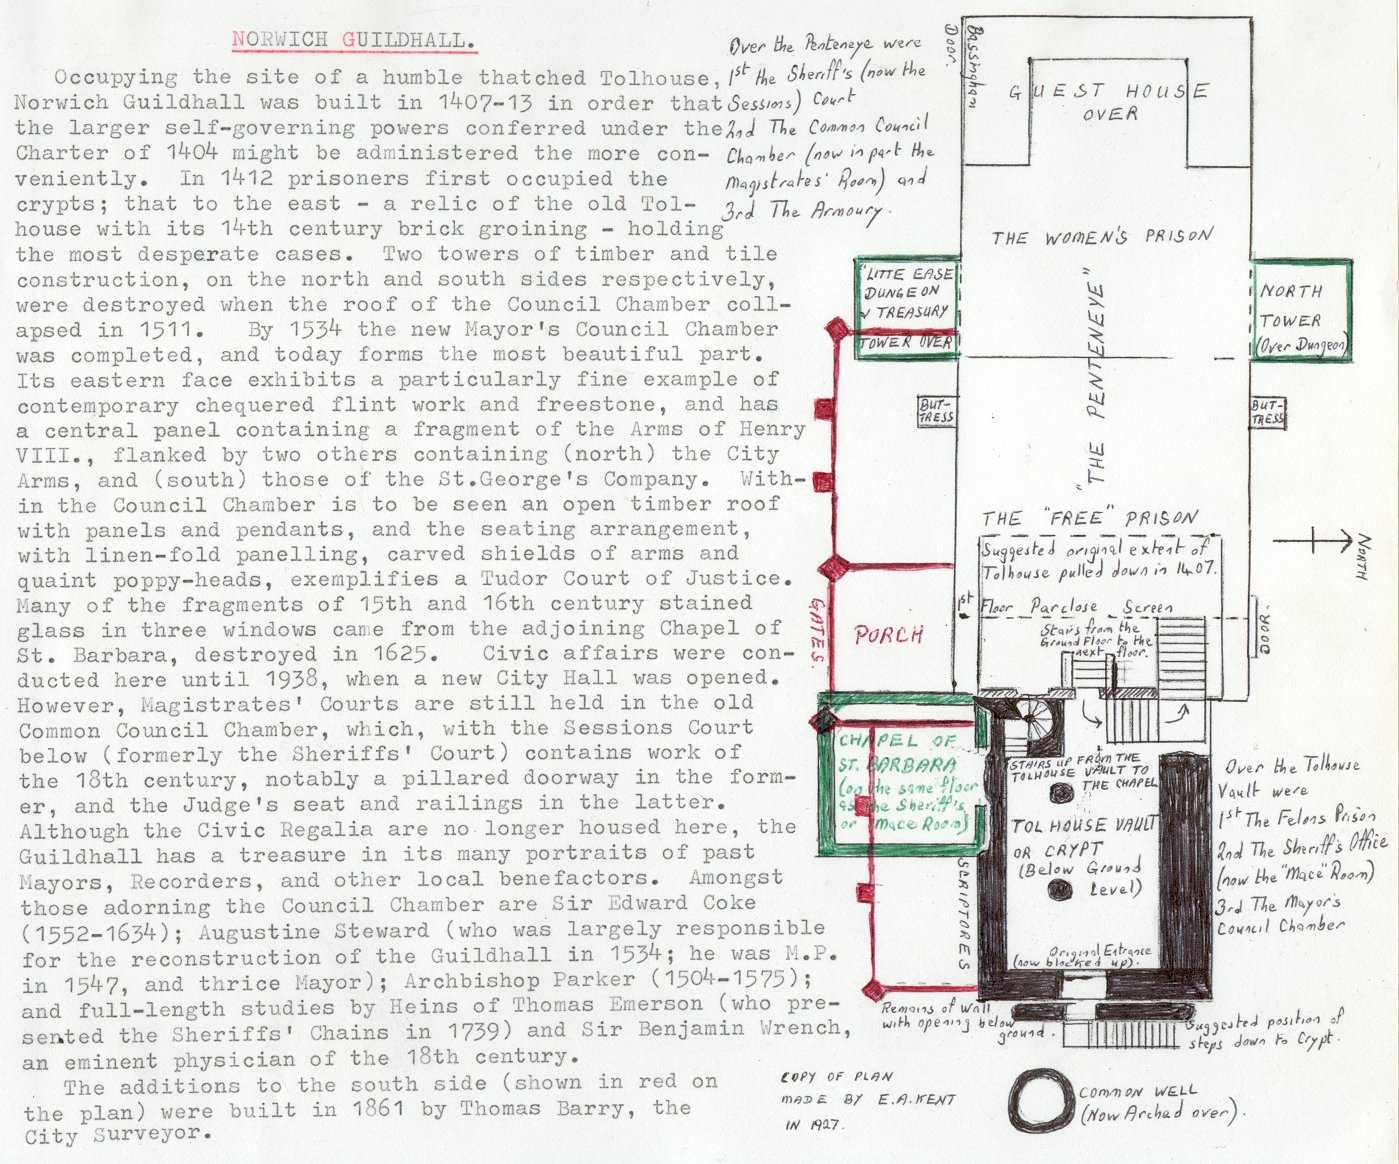 NORWICH GUILDHALL.
Occupying the site of a humble thatched Tolhouse,
Norwich Guildhall was built in 1407-13 in order that
the larger self-governing powers conferred under the
Charter of 1404 might be administered the more con-
veniently. In 1412 prisoners first occupied the
crypts; that to the east - a relic of the old Tol-
house with its 14th century brick groining - holding
the most desperate cases. Two towers of timber and tile
construction, on the north and south sides respectively,
were destroyed when the roof of the Council Chamber coll-
apsed in 1511. By 1534 the new Mayor's Council Chamber
was completed, and today forms the most beautiful part.
Its eastern face exhibits a particularly fine example of
contemporary chequered flint work and freestone, and has
a central panel containing a fragment of the Arms of Henry
VIII., flanked by two others containing (north) the City
Arms, and (south) those of the St.George's Company. With-
in the Council Chamber is to be seen an open timber roof
with panels and pendants, and the seating arrangement,
with linen-fold panelling, carved shields of arms and
quaint poppy-heads, exemplifies a Tudor Court of Justice.
Many of the fragments of 15th and 16th century stained
glass in three windows came from the adjoining Chapel of
St. Barbara, destroyed in 1625. Civic affairs were con-
ducted here until 1938, when a new City Hall was opened.
However, Magistrates' Courts are still held in the old
Common Council Chamber, which, with the Sessions Court
below (formerly the Sheriffs' Court) contains work of
the 18th century, notably a pillared doorway in the form-
er, and the Judge's seat and railings in the latter.
Although the Civic Regalia are no longer housed here, the
Guildhall has a treasure in its many portraits of past
Mayors, Recorders, and other local benefactors. Amongst
those adorning the Council Chamber are Sir Edward Coke
(1552-1634); Augustine Steward (who was largely responsible
for the reconstruction of the Guildhall in 1534; he was M.P.
in 1547, and thrice Mayor); Archbishop Parker (1504-1575);
and full-length studies by Heins of Thomas Emerson (who pre-
sented the Sheriffs' Chains in 1739) and Sir Benjamin Wrench,
an eminent physician of the 18th century.
The additions to the south side (shown in red on
the plan) were built in 1861 by Thomas Barry, the
City Surveyor.
Over the Penteneye were
1st the Sheriff's (now the
Sessions) Court
2nd The Common Council
Chamber (now in part the
Magistrates' Room) and
3rd The Armoury.
Bassingham
Door.
GUEST HOUSE
OVER
THE WOMEN'S PRISON
"THE PENTENEYE"
"LITTE EASE
DUNGEON
& TREASURY
TOWER OVER
NORTH
TOWER
(Over Dungeon)
BUT-
TRESS
BUT-
TRESS
THE "FREE" PRISON
Suggested original extent of
Tolhouse pulled down in 1407.
NORTH
1st Floor Parclose Screen
Stairs from the
Ground Floor to the
next floor.
DOOR.
GATES.
PORCH
CHAPEL OF
ST. BARBARA
(on the same floor
as the Sheriff's
or Mace Room)
STAIRS UP FROM THE
TOLHOUSE VAULT TO
THE CHAPEL
TOLHOUSE VAULT
OR CRYPT
(Below Ground
Level)
Original Entrance
(now blocked up).
SCRIPTORES
Over the Tolhouse
Vault were
1st The Felons Prison
2nd The Sheriff's Office
(now the "Mace" Room)
3rd The Mayor's
Council Chamber
Remains of Wall
with opening below
ground.
Suggested position of
steps down to Crypt.
COPY OF PLAN
MADE BY E.A.KENT
IN 1927.
COMMON WELL
(Now Arched over).